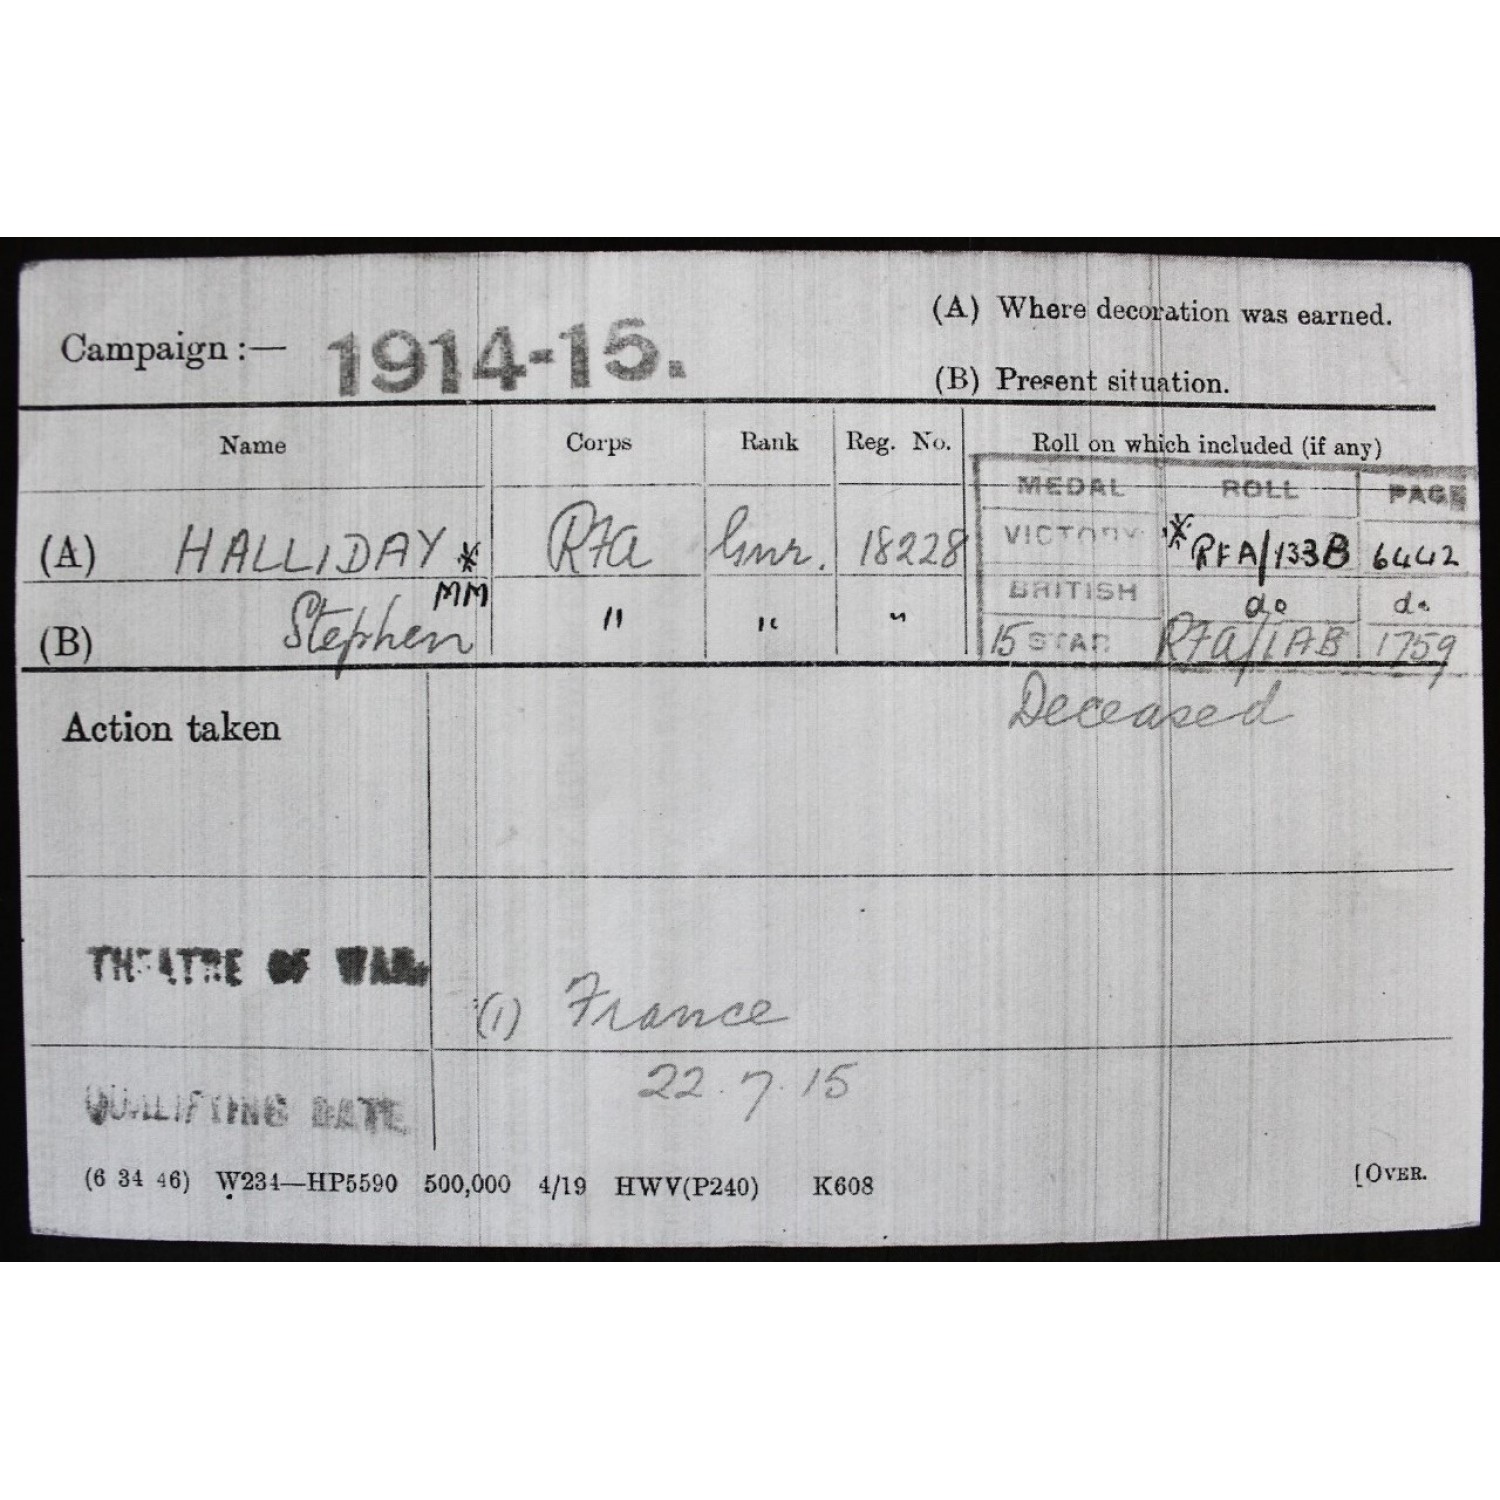 Campaign :— 1914-15.
(A) Where decoration was earned.
(B) Present situation.
Name Corps Rank Reg. No. Roll on which included (if any)
MEDAL ROLL PAGE
(A) HALLIDAY * RFA Gnr. 18228 VICTORY * RFA/133B 6442
MM
BRITISH do do
(B) Stephen " " " 15 STAR RFA/1AB 1759
Action taken Deceased
THEATRE OF WAR. (1) France
QUALIFYING DATE 22.7.15
(6 34 46) W234—HP5590 500,000 4/19 HWV(P240) K608 [OVER.